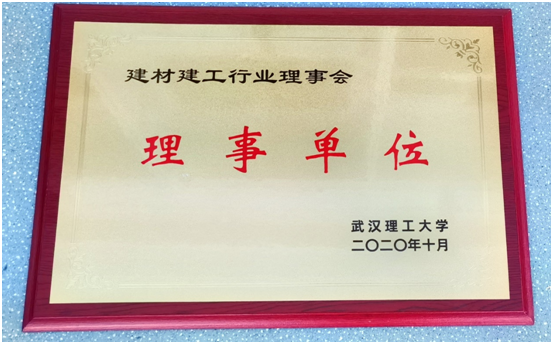 建材建工行业理事会
理事单位
武汉理工大学
二〇二〇年十月